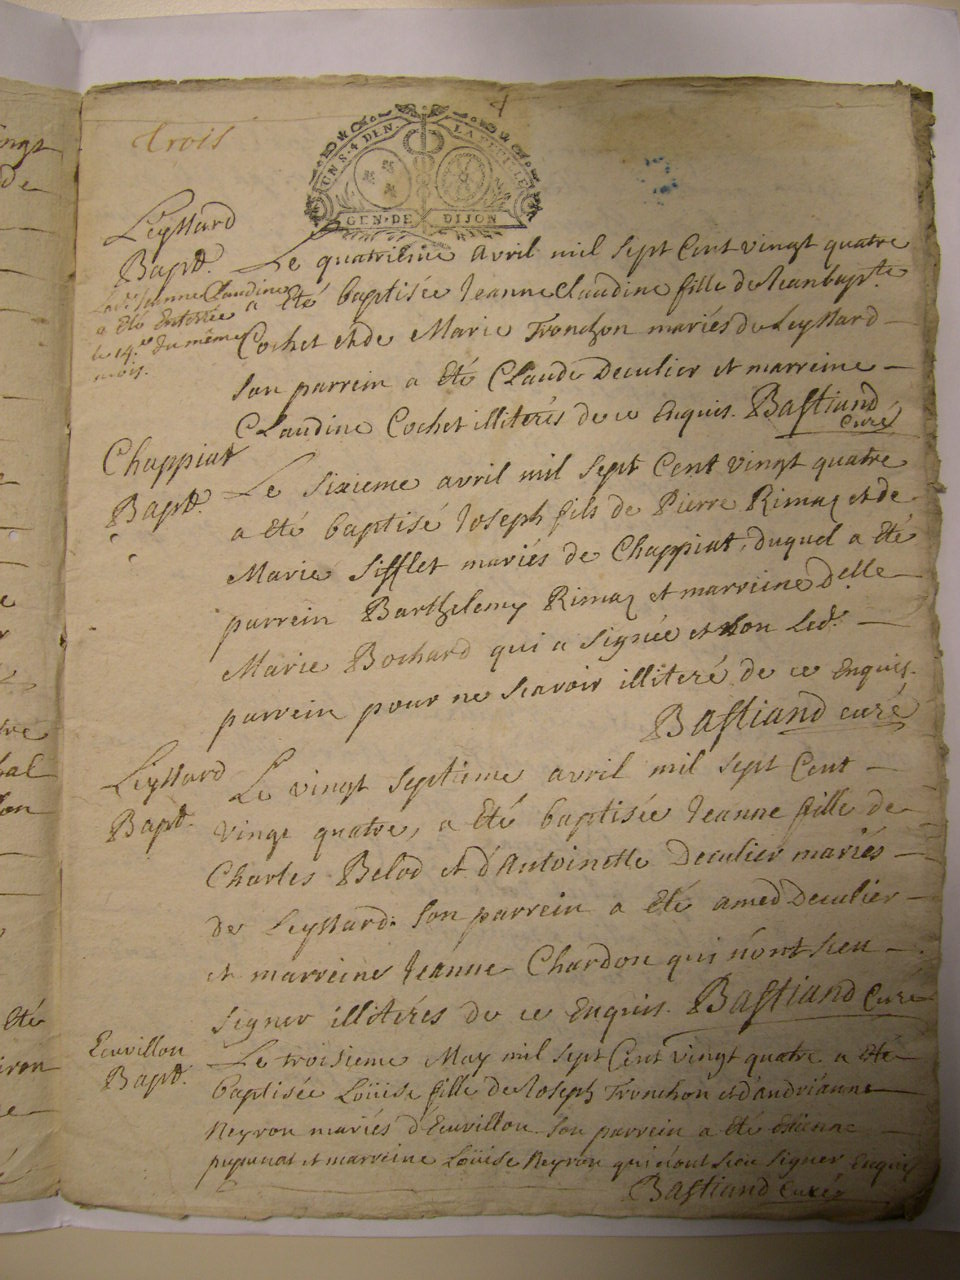 trois
4
UN S. 4 DEN. LA FEUILLE
GEN. DE DIJON
Leyssard
Bapt.
Lad. Jeanne Claudine
a été Enterrée
le 19.e du même
mois.
Le quatrieme avril mil sept Cent vingt quatre
a été baptisée Jeanne Claudine fille de Jean bapt.te
Cochet et de Marie Tronchon mariés de Leyssard
son parrein a été Claude Deculier et marreine
Claudine Cochet illiterés de ce Enquis. Bastiand
Curé
Chappiat
Bapt.
Le sixieme avril mil sept Cent vingt quatre
a été baptisé Joseph fils de Pierre Rimaz et de
Marie Sifflet mariés de Chappiat, duquel a été
parrein Barthelemy Rimaz et marreine D.elle
Marie Bochard qui a signée et non led.
parrein pour ne scavoir illiteré de ce enquis.
Bastiand curé
Leyssard
Bapt.
Le vingt septieme avril mil sept Cent
vingt quatre, a été baptisée Jeanne fille de
Charles Belod et d'Antoinette Deculier mariés
de Leyssard. son parrein a été amed Deculier
et marreine Jeanne Chardon qui n'ont sceu
signer illiterés de ce enquis. Bastiand Curé
Ecuvillon
Bapt.
Le troisieme May mil sept Cent vingt quatre a été
baptisée Loüise fille de Joseph Tronchon et d'andriánne
Neyron mariés d'Ecuvillon son parrein a été
et marreine Loüise Neyron qui n'ont sceu signer enquis
Bastiand curé